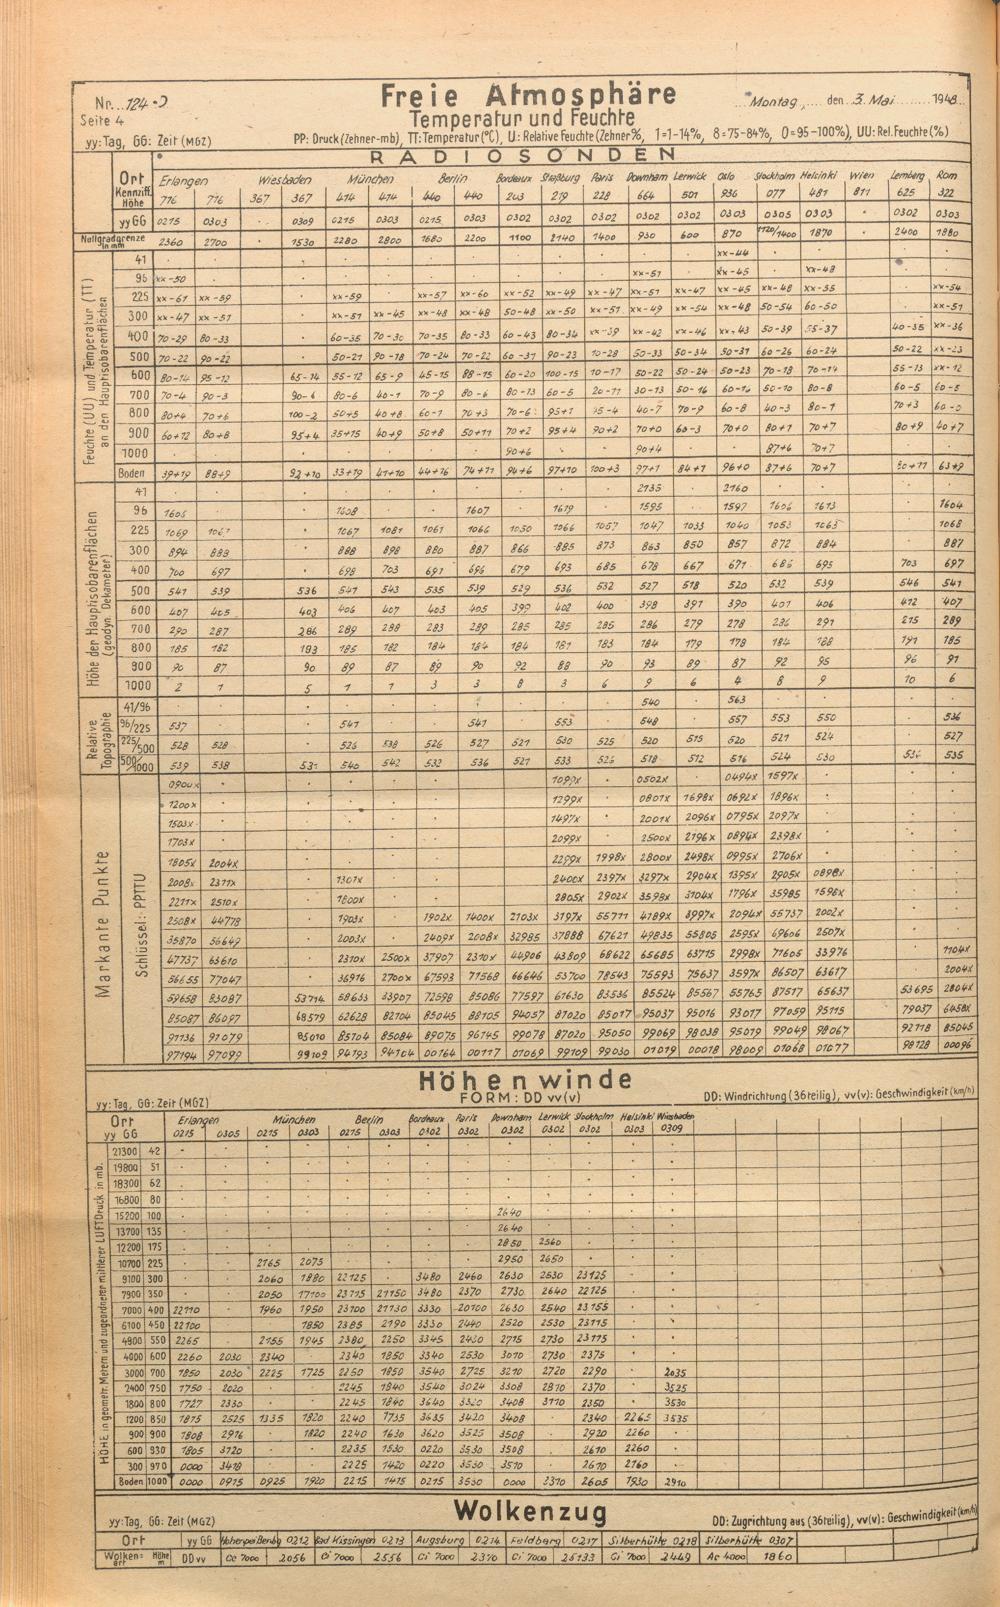 Nr. 124
Freie Atmosphäre
Montag, den 3. Mai 1948
Seite 4
Temperatur und Feuchte
yy: Tag, GG: Zeit (MGZ)
PP: Druck (Zehner-mb), TT: Temperatur (°C), U: Relative Feuchte (Zehner %, 1=1-14%, 8=75-84%, 0=95-100%), UU: Rel. Feuchte (%)
RADIOSONDEN
Ort Erlangen Wiesbaden München Berlin Bordeaux Straßburg Paris Downham Lerwick Oslo Stockholm Helsinki Wien Lemberg Rom
Kennziff. Höhe 716 716 367 367 414 414 440 440 203 219 228 664 501 936 077 481 811 625 322
yy GG 0215 0303 · 0309 0215 0303 0215 0303 0302 0302 0302 0302 0302 0303 0305 0303 · 0302 0303
Nullgradgrenze in m 2360 2700 · 1530 2280 2800 1680 2200 1100 2140 1400 930 600 870 1120/1400 1870 · 2400 1880
Feuchte (UU) und Temperatur (TT) an den Hauptisobarenflächen
41 xx-44
96 xx-50 xx-51 xx-45 xx-48
225 xx-61 xx-59 xx-59 xx-57 xx-60 xx-52 xx-49 xx-47 xx-51 xx-47 xx-45 xx-48 xx-55 xx-54
300 xx-47 xx-51 xx-51 xx-45 xx-48 xx-48 50-48 xx-50 xx-51 xx-49 xx-54 xx-48 50-54 60-50 xx-51
400 70-29 80-33 60-35 70-30 70-35 80-33 60-43 80-34 xx-39 xx-42 xx-46 xx-43 50-39 55-37 40-35 xx-36
500 70-22 90-22 50-21 90-18 70-24 70-22 60-31 90-23 10-28 50-33 50-34 50-31 60-26 60-24 50-22 xx-23
600 80-14 95-12 65-14 55-12 65-9 45-15 88-15 60-20 100-15 10-17 50-22 50-24 50-23 70-18 70-14 55-13 xx-12
700 70-4 90-3 90-6 80-6 40-1 70-9 80-6 80-13 60-5 20-11 30-13 50-16 60-14 50-10 80-8 60-5 60-5
800 80+4 70+6 100-2 50+5 40+8 60-1 70+3 70-6 95+1 95-4 40-7 70-9 60-8 40-3 80-1 70+3 60-0
900 60+12 80+8 95+4 35+15 40+9 50+8 50+11 70+2 95+4 90+2 70+0 60-3 70+0 80+1 70+7 80+9 40+7
1000 90+6 90+4 87+6 70+7
Boden 39+19 88+9 92+10 33+19 41+10 44+16 74+11 94+6 97+10 100+3 97+1 84+1 96+0 87+6 70+7 50+11 63+9
Höhe der Hauptisobarenflächen (geodyn. Dekameter)
41 2135 2160
96 1605 1608 1607 1619 1595 1597 1606 1613 1604
225 1069 1067 1067 1081 1061 1066 1050 1066 1057 1047 1033 1040 1053 1063 1068
300 894 888 888 898 880 887 866 885 873 863 850 857 872 884 887
400 700 697 698 703 691 696 679 693 685 678 667 671 686 695 703 697
500 541 539 536 541 543 535 539 529 536 532 527 518 520 532 539 546 541
600 407 405 403 406 407 403 405 399 402 400 398 391 390 401 406 412 407
700 290 287 286 289 288 283 289 285 285 285 286 279 278 286 291 215 289
800 185 182 183 185 182 184 184 184 181 183 184 179 178 184 188 191 185
900 90 87 90 89 87 89 90 92 88 90 93 89 87 92 95 96 91
1000 2 1 5 1 1 3 3 8 3 6 9 6 4 8 9 10 6
Relative Topographie
41/96 540 563
96/225 537 541 541 553 548 557 553 550 536
225/500 528 528 525 538 526 527 521 530 525 520 515 520 521 524 527
500/1000 539 538 531 540 542 532 536 521 533 526 518 512 516 524 530 536 535
Markante Punkte
Schlüssel: PPTTU
0900x 1099x 0502x 0494x 1597x
1200x 1299x 0801x 1698x 0692x 1896x
1503x 1497x 2001x 2096x 0795x 2097x
1703x 2099x 2500x 2196x 0894x 2398x
1805x 2004x 2299x 1998x 2800x 2498x 0995x 2706x
2008x 2311x 1301x 2400x 2397x 3297x 2904x 1395x 2905x 0898x
2211x 2510x 1800x 2805x 2902x 3598x 3104x 1796x 35985 1598x
2508x 44778 1903x 1902x 1400x 2103x 3197x 55711 4189x 3997x 2094x 55737 2002x
35870 56649 2003x 2409x 2008x 32985 37888 67621 49835 55805 2595x 69606 2507x
47737 63610 2310x 2500x 37907 2310x 44906 43809 68622 65685 63715 2998x 71605 33976 1104x
56655 77047 36916 2700x 67593 71568 66646 53700 78543 75593 75637 3597x 86507 63617 2004x
59658 83087 53714 58633 33907 72598 85086 77597 61630 83536 85524 85567 55765 87517 65637 53695 2804x
85087 86097 68579 62628 82104 85045 88105 94057 87020 85017 95037 95016 93017 97059 95115 79037 6458x
91136 91079 85010 85104 85084 89075 96145 99078 87020 95050 99069 98038 95019 99049 98067 92118 85045
97194 97099 99109 94193 94104 00164 00117 01069 99109 99030 01019 00018 98009 01068 01077 98128 00096
Höhenwinde
yy: Tag, GG: Zeit (MGZ)
FORM: DD vv(v)
DD: Windrichtung (36teilig), vv(v): Geschwindigkeit (km/h)
Ort Erlangen München Berlin Bordeaux Paris Downham Lerwick Stockholm Helsinki Wiesbaden
yy GG 0215 0305 0215 0303 0215 0303 0302 0302 0302 0302 0302 0303 0309
HÖHE in geometr. Metern und zugeordneter mittlerer LUFTDruck in mb.
21300 42
19800 51
18300 62
16800 80
15200 100 2640
13700 135 2640
12200 175 2850 2560
10700 225 2165 2075 2950 2650
9100 300 2060 1880 22125 3480 2460 2630 2530 23125
7900 350 2050 17100 23115 21150 3480 2370 2730 2640 22125
7000 400 22110 1960 1950 23100 21130 3330 20100 2630 2540 23155
6100 450 22100 1850 2385 2190 3330 2440 2520 2530 23115
4900 550 2265 2155 1945 2380 2250 3345 2430 2715 2730 23115
4000 600 2260 2030 2340 2340 1850 3340 2530 3010 2730 2375
3000 700 1850 2030 2225 1725 2250 1850 3540 2725 3210 2720 2290 2035
2400 750 1750 2020 2245 1840 3540 3024 3308 2810 2370 3525
1800 800 1727 2330 2245 1840 3640 3320 3408 3110 2350 3530
1200 850 1815 2525 1335 1820 2240 1735 3635 3420 3408 2340 2265 3535
900 900 1808 2916 1820 2240 1630 3620 3525 3508 2920 2260
600 930 1805 3120 2235 1530 0220 3530 3508 2610 2260
300 970 0000 3418 2225 1420 0220 3530 3510 2610 2160
Boden 1000 0000 0915 0925 1920 2215 1415 0215 3530 0000 2310 2605 1930 2910
Wolkenzug
yy: Tag, GG: Zeit (MGZ)
DD: Zugrichtung aus (36teilig), vv(v): Geschwindigkeit (km/h)
Ort yy GG Hohenpeißenbg 0212 Bad Kissingen 0213 Augsburg 0214 Feldberg 0217 Silberhütte 0218 Silberhütte 0307
Wolken=art Höhe m DD vv Cc 7000 2056 Ci 7000 2556 Ci 7000 2370 Ci 7000 25133 Ci 7000 2449 Ac 4000 1860